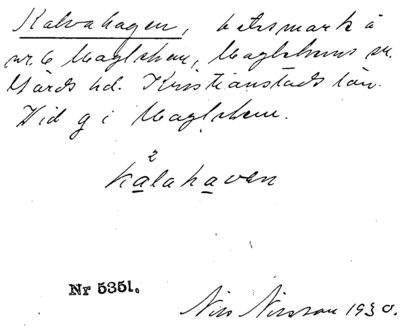 Kalvahagen, betesmark å
nr. 6 Maglehem, Maglehems sn.
Gärds hd. Kristianstads län.
Vid g i Maglehem.
2
kalahaven
Nr 5351.
Nils Nilsson 1930.